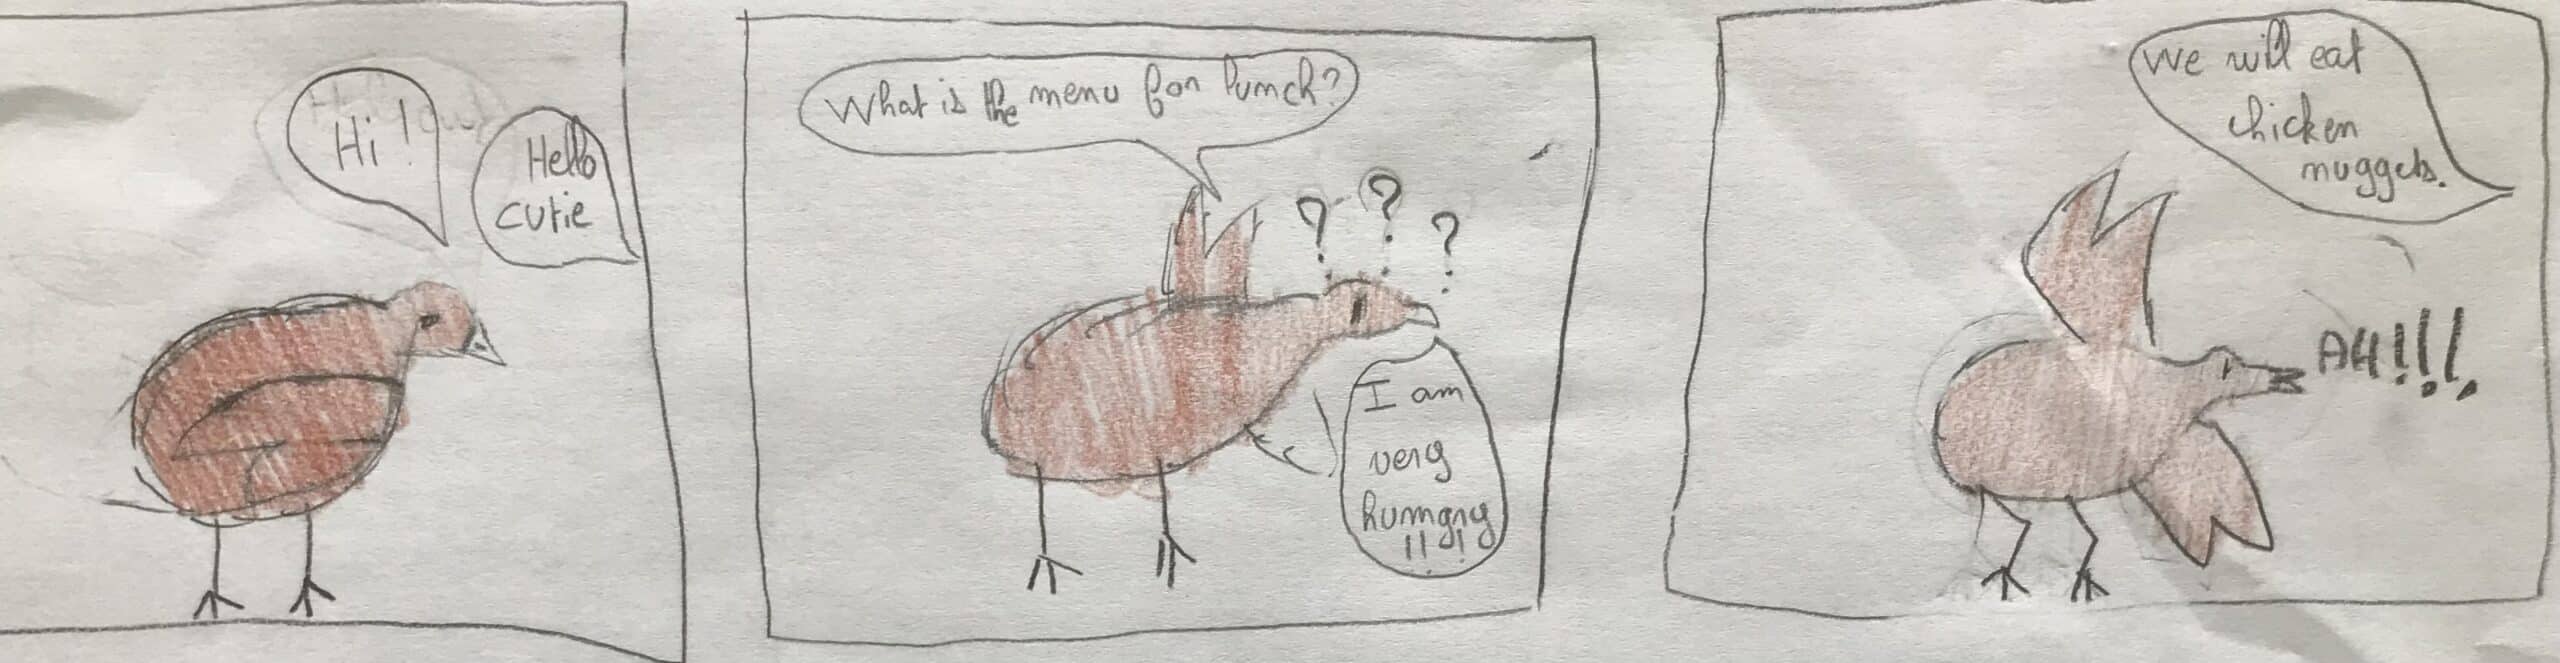 Hi!
Hello
cutie
What is the menu for lunch?
? ? ?
I am
very
hungry
!!!
We will eat
chicken
nuggets.
AH!!!